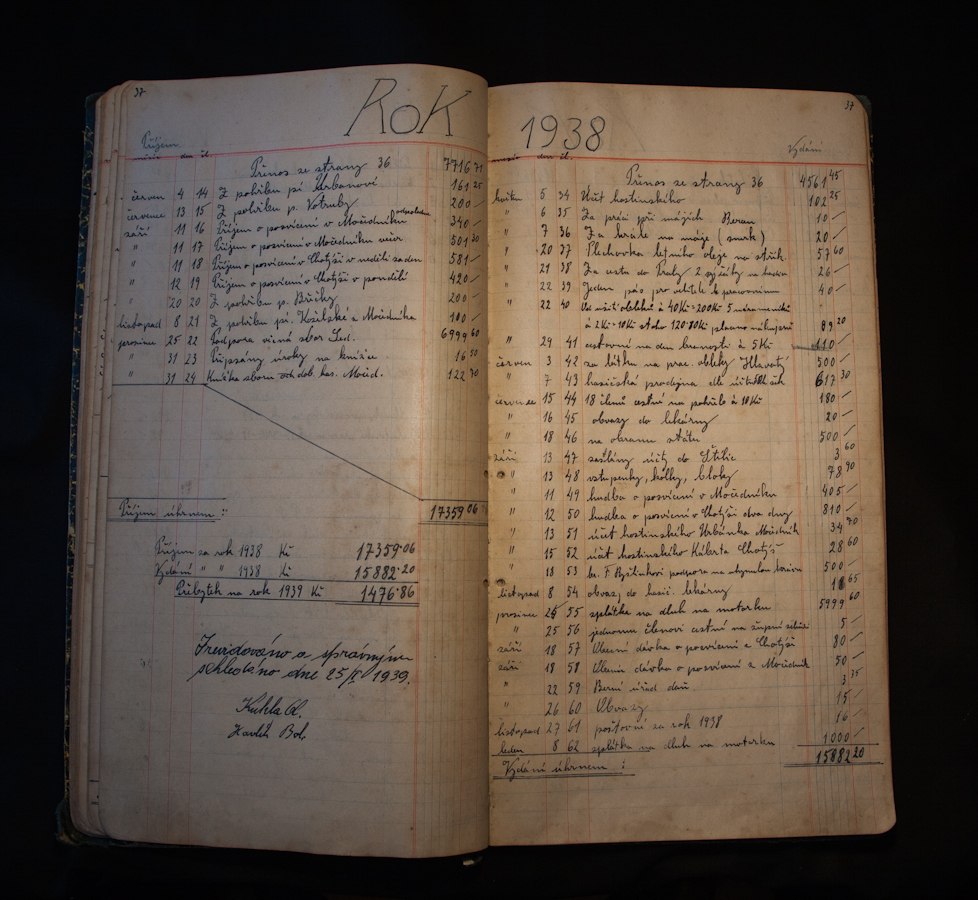 37
Rok
Příjem
měsíc den čl.
Přenos ze strany 36 7716 71
červen 4 14 Z pohřbu pí. Urbanové 161 25
července 13 15 Z pohřbu p. Votruby 200 —
září 11 16 Příjem o posvícení v Močedníku odpoledne 340 —
" 11 17 Příjem o posvícení v Močedníku večer 501 30
" 11 18 Příjem o posvícení v Chotýši v neděli za den 581 —
" 12 19 Příjem o posvícení v Chotýši v pondělí 420 —
" 20 20 Z pohřbu p. Bučky 200 —
listopad 8 21 Z pohřbu pí. z Močedníka 100 —
prosince 25 22 Podpora sbor 6999 60
" 31 23 Připsány úroky na knížce 16 50
" 31 24 Knížka sboru Močed. 122 70
Příjem úhrnem : 17359 06
Příjem za rok 1938 Kč 17359·06
Vydání " " 1938 Kč 15882·20
Přebytek na rok 1939 Kč 1476·86
Zrevidováno a správným
shledáno dne 25/I 1939.
37
1938
Vydání
měsíc den čl.
Přenos ze strany 36 4561 45
5 34 Účet hostinského 102 25
" 6 35 Za práci při májích Beran 10 —
" 7 36 Za na máje (smrk) 20 —
" 20 37 Plechovka oleje na střík. 57 60
" 21 38 Za cestu do Prahy 2 26 —
" 22 39 Jeden pás pro velitele k pracovnímu 40 —
" 22 40 à 40 Kč = 200 Kč 5
à 2 Kč = 10 Kč 89 20
" 29 41 cestovní na den brannosti à 5 Kč 110 —
červen 3 42 za látku na prac. obleky Hlavatý 500 —
" 7 43 hasičská prodejna dle účtu 617 30
červenec 15 44 18 členů cestné na pohřeb à 10 Kč 180 —
" 16 45 obvazy do lékárny 20 —
" 18 46 na obranu státu 500 —
září 13 47 účty do 3 60
" 13 48 vstupenky, kolky, bloky 78 90
" 11 49 hudba o posvícení v Močedníku 405 —
" 12 50 hudba o posvícení v Chotýši dva dny 810 —
" 13 51 účet hostinského Urbánka Močedník 34 70
" 15 52 účet hostinského Chotýš 28 60
" 18 53 br. F. podpora na 500 —
listopad 8 54 obvazy do hasič. lékárny 65
prosince 25 55 splátka na dluh na motorku 5999 60
" 25 56 jednomu členovi cestné na župní 5 —
září 18 57 Obecní dávka o posvícení z Chotýši 80 —
září 18 58 Obecní dávka o posvícení z Močedník 50 —
" 22 59 Berní úřad daň 3 35
" 26 60 Obvazy 15 —
listopad 27 61 poštovní za rok 1938 16 —
leden 8 62 splátka na dluh na motorku 1000 —
Vydání úhrnem : 15882 20